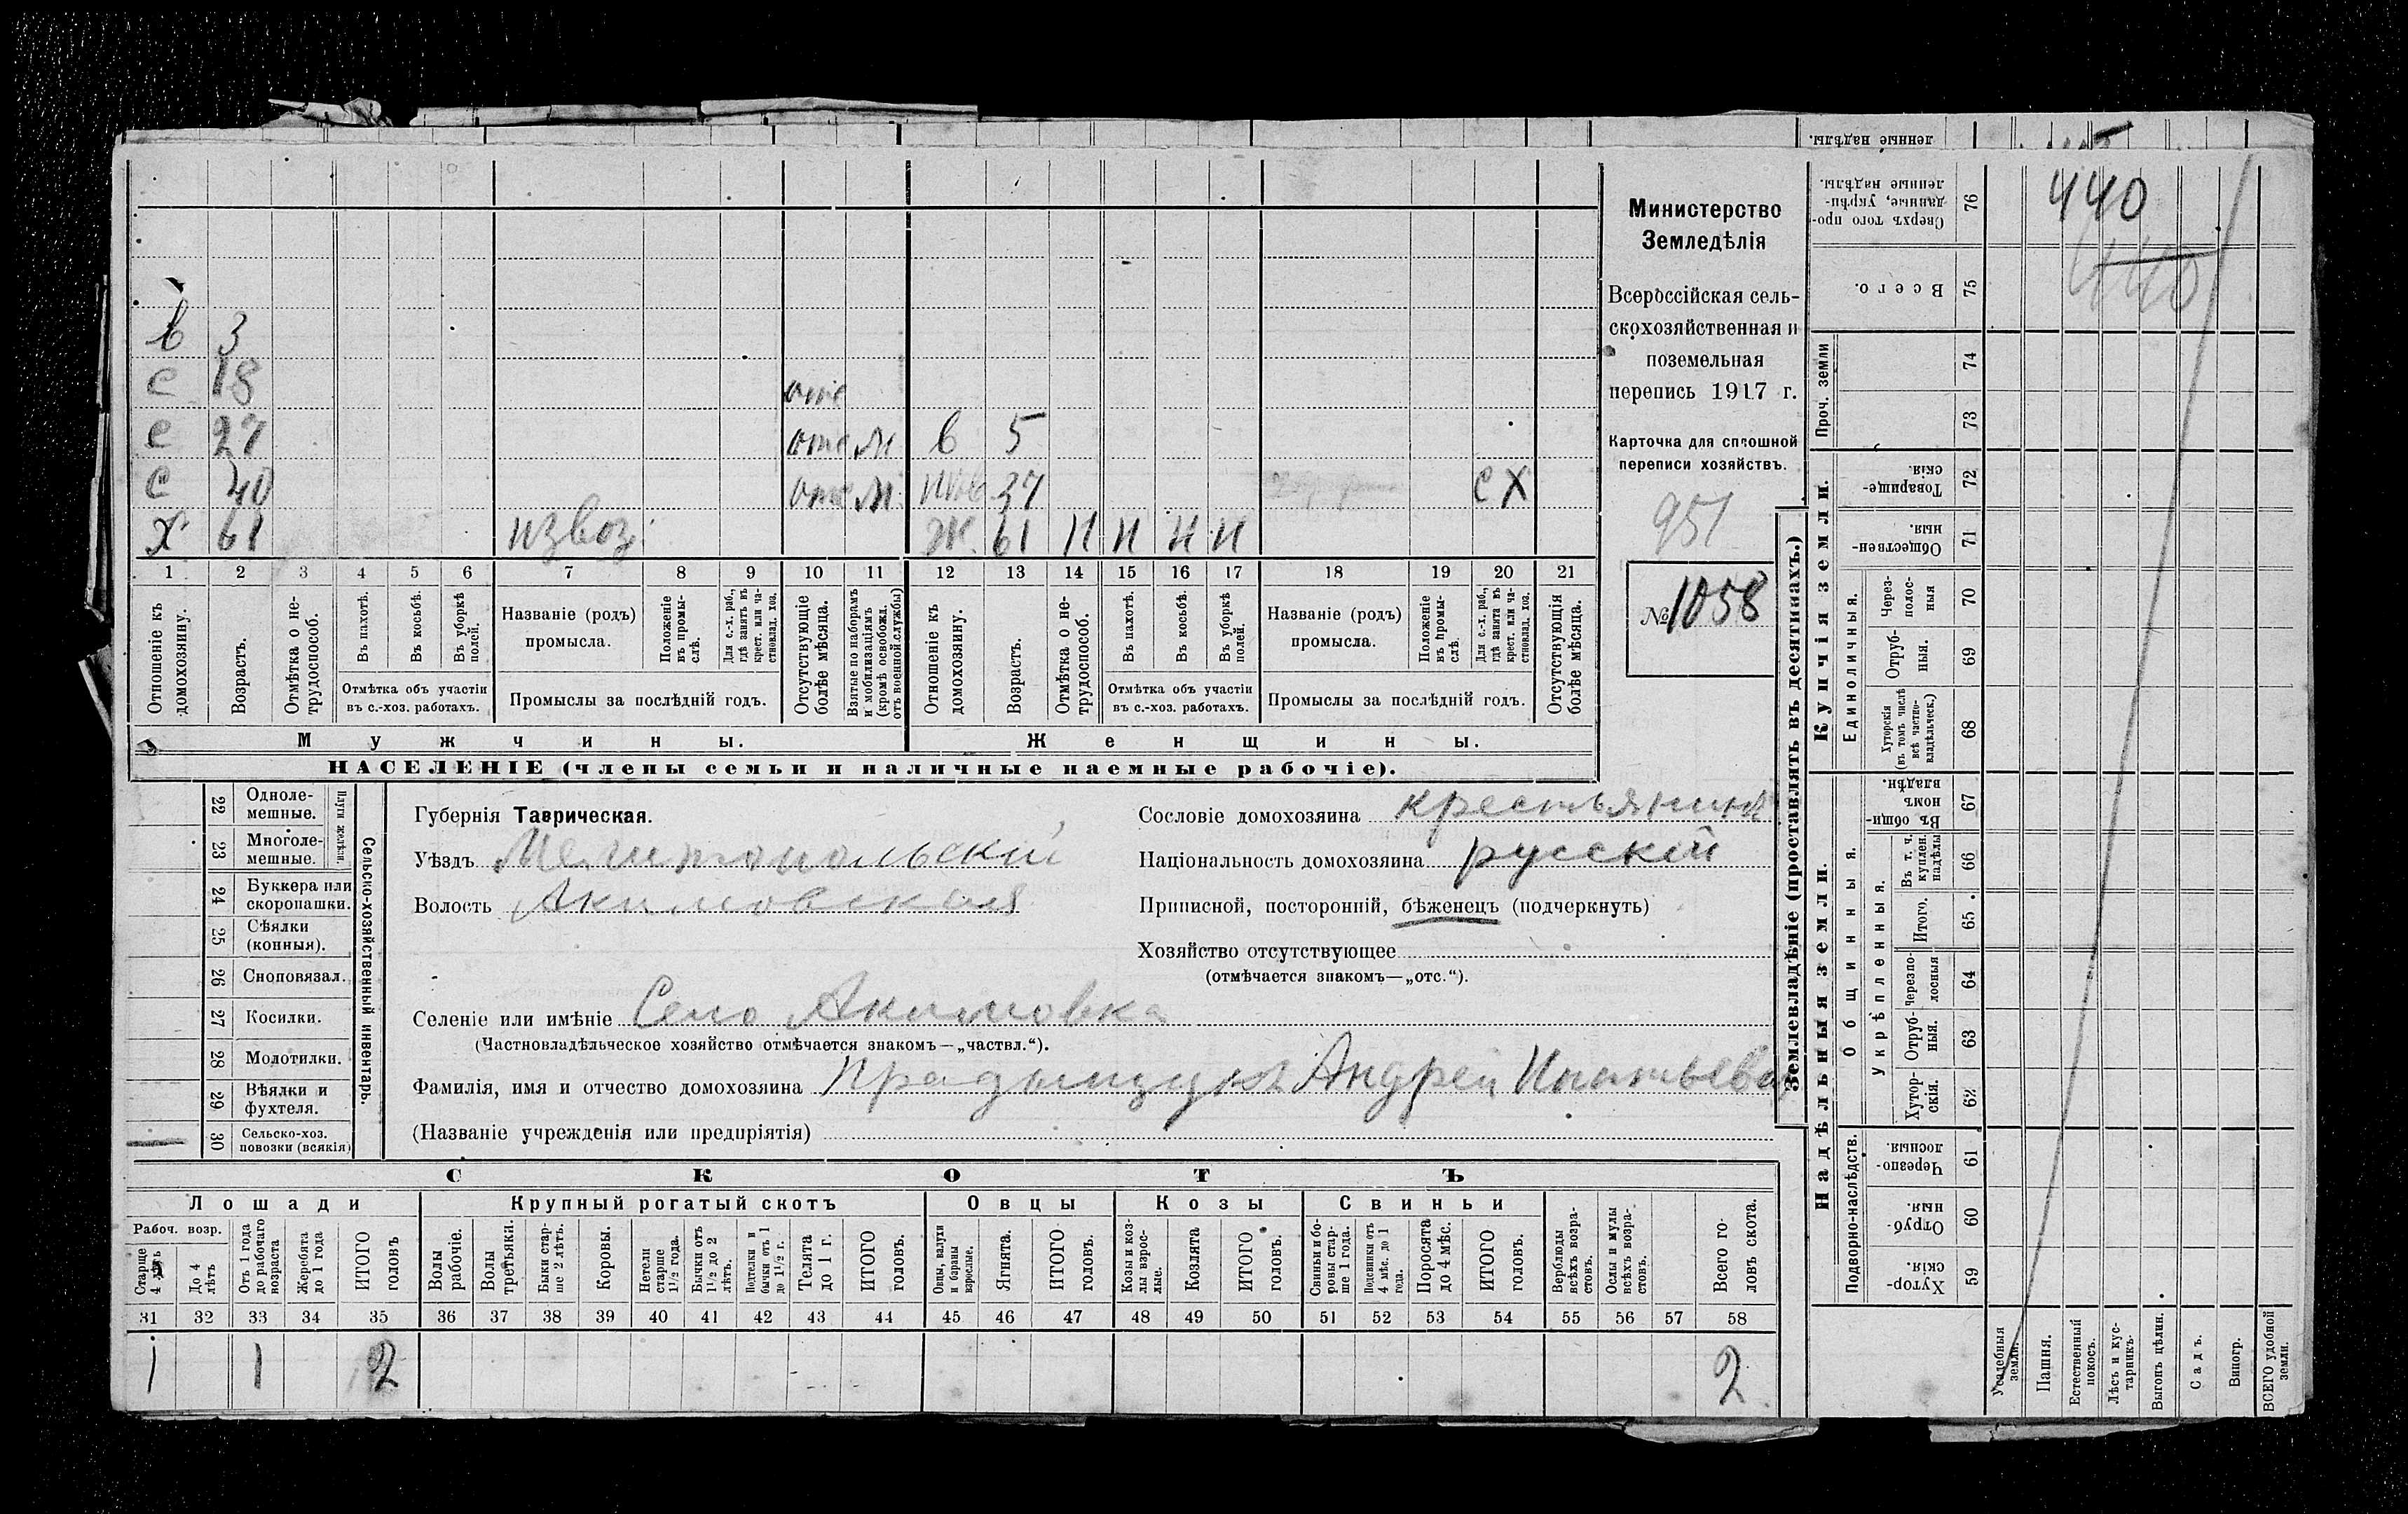 440
440
в 3
с 18 отс
с 27 отс М в 5
с 40 отс М 37 С Х
х 61 извоз. Ж. 61 Н Н Н Н
1 2 3 4 5 6 7 8 9 10 11 12 13 14 15 16 17 18 19 20 21
Отношеніе къ домохозяину.
Возрастъ.
Отмѣтка о не-трудоспособ.
Въ пахотѣ.
Въ косьбѣ.
Въ уборкѣ полей.
Отмѣтка объ участіи въ с.-хоз. работахъ.
Названіе (родъ) промысла.
Положеніе въ промы-слѣ.
Для с.-х. раб., гдѣ занятъ въ крест. или ча-стновлад. хоз.
Промыслы за послѣдній годъ.
Отсутствующіе болѣе мѣсяца.
Взятые по наборамъ и мобилизаціямъ (кромѣ освобожд. отъ военной службы)
Отношеніе къ домохозяину.
Возрастъ.
Отмѣтка о не-трудоспособ.
Въ пахотѣ.
Въ косьбѣ.
Въ уборкѣ полей.
Отмѣтка объ участіи въ с.-хоз. работахъ.
Названіе (родъ) промысла.
Положеніе въ промы-слѣ.
Для с.-х. раб., гдѣ занята въ крест. или ча-стновлад. хоз.
Промыслы за послѣдній годъ.
Отсутствующія болѣе мѣсяца.
Мужчины.
Женщины.
НАСЕЛЕНІЕ (члены семьи и наличные наемные рабочіе).
Министерство
Земледѣлія
Всероссійская сель-
скохозяйственная и
поземельная
перепись 1917 г.
Карточка для сплошной
переписи хозяйствъ.
951
№ 1058
22 Одноле-мешные.
23 Многоле-мешные.
Плуги желѣзн.
24 Буккера или скоропашки.
25 Сѣялки (конныя).
26 Сноповязал.
27 Косилки.
28 Молотилки.
29 Вѣялки и фухтеля.
30 Сельско-хоз. повозки (всякія)
Сельско-хозяйственный инвентарь.
Губернія Таврическая.
Уѣздъ Мелитопольскій
Волость Акимовская
Сословіе домохозяина крестьянинъ
Національность домохозяина русскій
Приписной, посторонній, бѣженецъ (подчеркнуть)
Хозяйство отсутствующее
(отмѣчается знакомъ—„отс.“).
Селеніе или имѣніе Село Акимовка
(Частновладѣльческое хозяйство отмѣчается знакомъ—„частвл.“).
Фамилія, имя и отчество домохозяина Андрей
(Названіе учрежденія или предпріятія)
СКОТЪ
Лошади
Крупный рогатый скотъ
Овцы
Козы
Свиньи
Рабоч. возр.
Старше 4 лѣтъ
До 4 лѣтъ
Отъ 1 года до рабочаго возраста
Жеребята до 1 года
ИТОГО головъ
Волы рабочіе.
Волы третьяки.
Быки стар-ше 2 лѣтъ.
Коровы.
Нетели старше 1½ года.
Бычки отъ 1½ до 2 лѣтъ.
Подтелки и бычки отъ 1 до 1½ г.
Телята до 1 г.
ИТОГО головъ.
Овцы, валухи и бараны взрослые.
Ягнята.
ИТОГО головъ.
Козы и коз-лы взрос-лые.
Козлята
ИТОГО головъ.
Свиньи и бо-ровы стар-ше 1 года.
Подсвинки отъ 4 мѣс. до 1 года.
Поросята до 4 мѣс.
ИТОГО головъ.
Верблюды всѣхъ возра-стовъ.
Ослы и мулы всѣхъ возра-стовъ.
Всего го-ловъ скота.
31 32 33 34 35 36 37 38 39 40 41 42 43 44 45 46 47 48 49 50 51 52 53 54 55 56 57 58
1 1 2 2
Землевладѣніе (проставлять въ десятинахъ.)
Купчія земли.
Надѣльныя земли.
ленные надѣлы.
76 Сверхъ того про-данные, укрѣп-ленные надѣлы.
75 Всего.
Проч. земли
74
73
72 Товарище-скія.
71 Обществен-ныя.
Единоличныя.
70 Через-полос-ныя
69 Отруб-ныя.
68 Хуторскія (въ томъ числѣ всѣ частно-владѣльческ.)
Общинныя.
67 Въ общин-номъ владѣн.
Укрѣпленныя.
66 Въ т. ч. куплен. надѣлы
65 Итого.
64 Черезпо-лосныя
63 Отруб-ныя.
62 Хутор-скія.
Подворно-наслѣдств.
61 Черезпо-лосныя
60 Отруб-ныя.
59 Хутор-скія.
Усадебныя земли.
Пашня.
Естественный покосъ.
Лѣсъ и кус-тарникъ.
Выгонъ цѣлин.
Садъ.
Виногр.
ВСЕГО удобной земли.